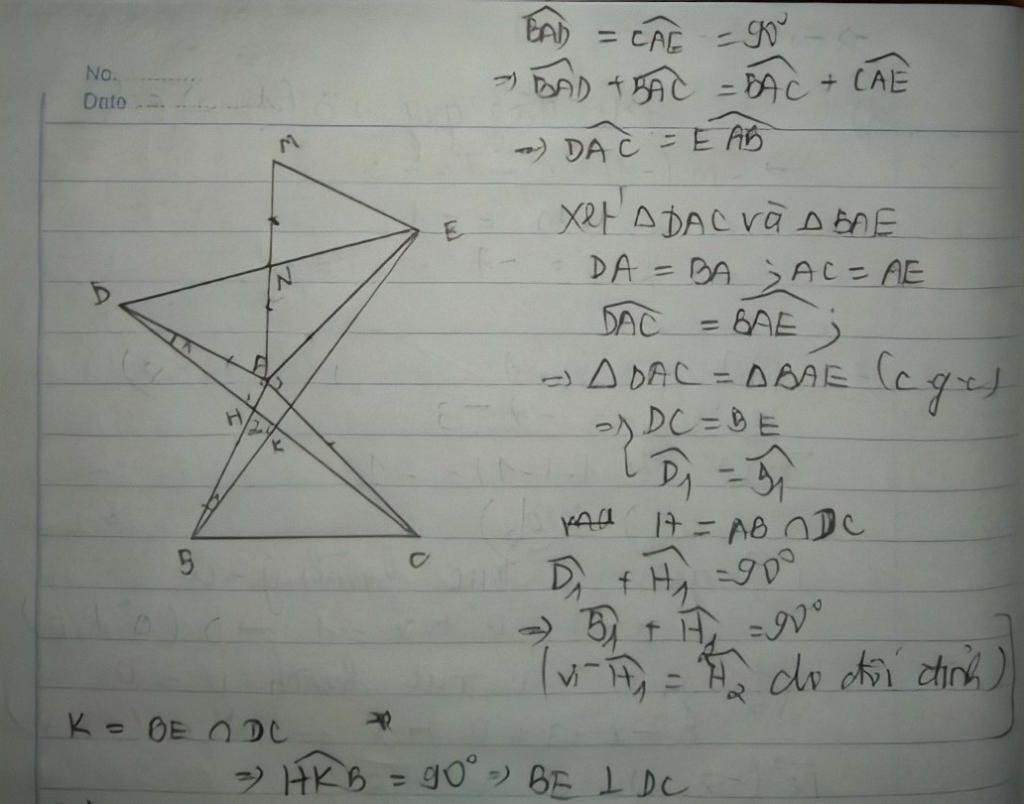 No. ............
Date ............
M
E
N
D
1
A
H
2
K
B
C
BAD = CAE = 90°
=> BAD + BAC = BAC + CAE
=> DAC = EAB
Xét ΔDAC và ΔBAE
DA = BA ; AC = AE
DAC = BAE ;
=> ΔDAC = ΔBAE (c g-c)
=> { DC = BE
D1 = B1
H = AB ∩ DC
D1 + H1 = 90°
=> B1 + H1 = 90°
(vì H1 = H2 do đối đỉnh)
K = BE ∩ DC
=> HKB = 90° => BE ⊥ DC